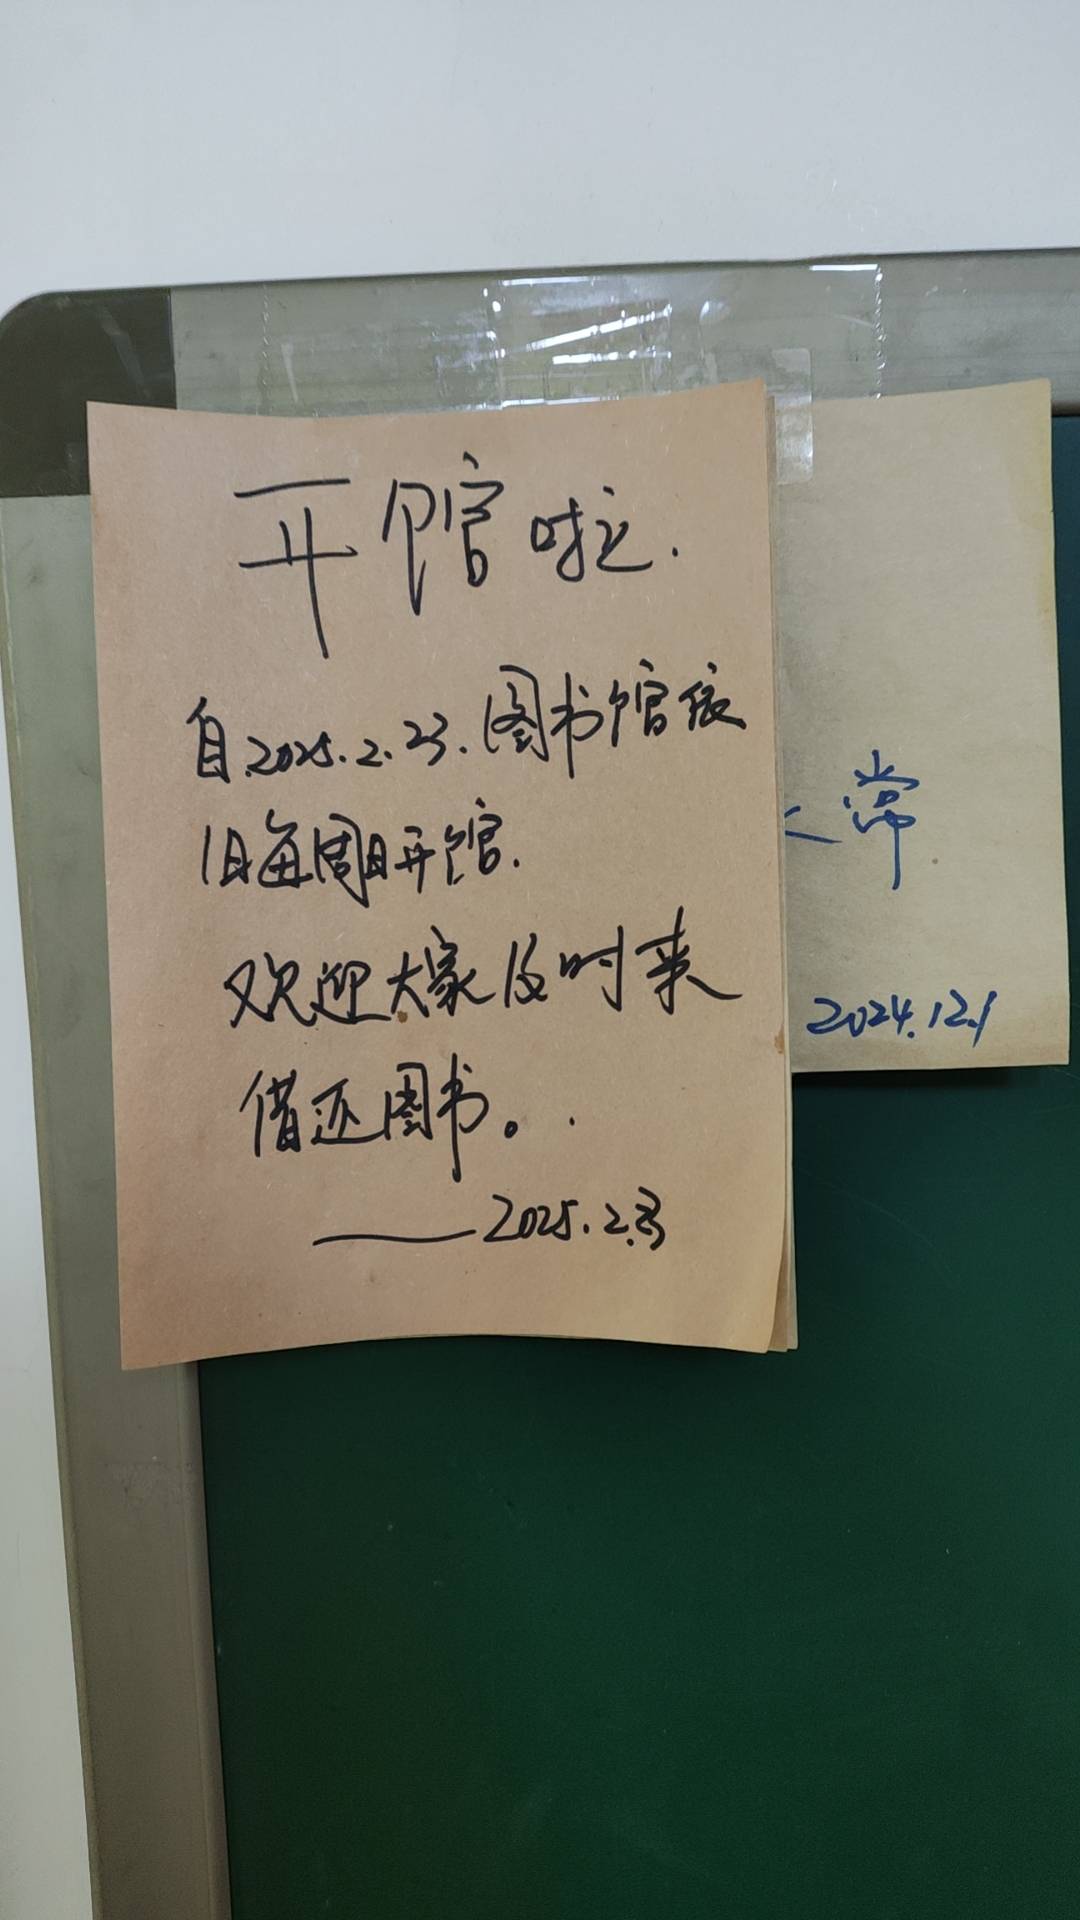 开馆啦.
自2025.2.23.图书馆依
旧每周日开馆.
欢迎大家及时来
借还图书。.
——2025.2.23
常
2024.12.1